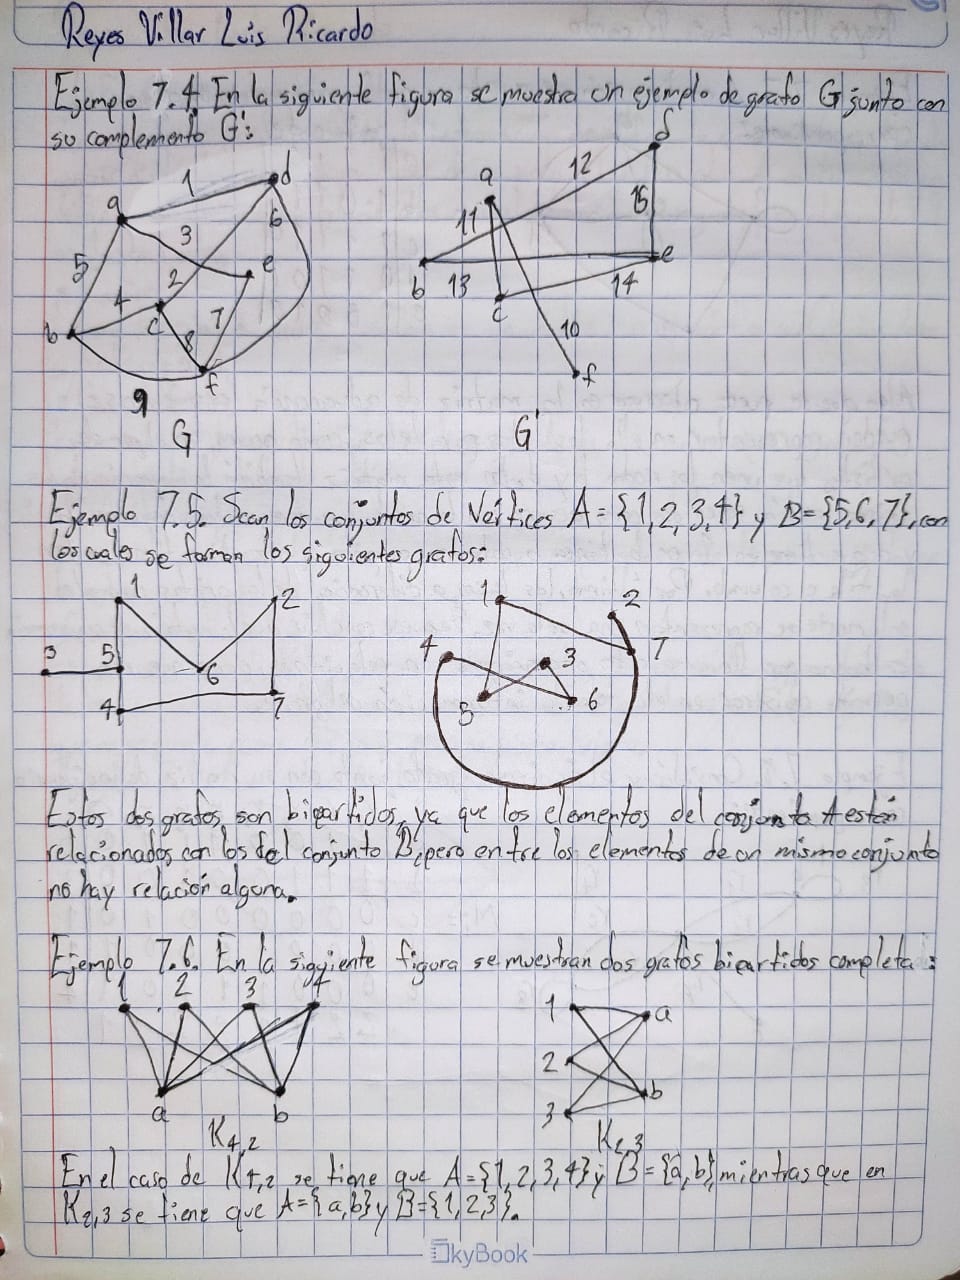 Reyes Villar Luis Ricardo
Ejemplo 7.4. En la siguiente figura se muestra un ejemplo de grafo G junto con
su complemento G':
a 1 d
3 6
5 e
2
4 c 7
b 8
f
9
G
d
12
a
11 15
b 13 e
c 14
10
f
G'
Ejemplo 7.5. Sean los conjuntos de Vértices A={1,2,3,4} y B={5,6,7}, con
los cuales se forman los siguientes grafos:
1 2
3 5 6
4 7
1 2
4 3 7
5 6
Estos dos grafos son bipartidos, ya que los elementos del conjunto A están
relacionados con los del conjunto B, pero entre los elementos de un mismo conjunto
no hay relación alguna.
Ejemplo 7.6. En la siguiente figura se muestran dos grafos bipartidos completa:
1 2 3 4
a b
K4,2
1 a
2
b
3
K2,3
En el caso de K4,2 se tiene que A={1,2,3,4} y B={a,b}, mientras que en
K2,3 se tiene que A={a,b} y B={1,2,3}.
SkyBook